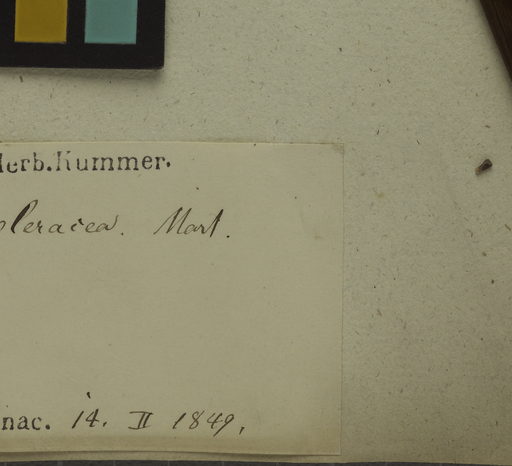 Herb.Kummer.
oleracea. Mart.
nac. 14. II 1849,